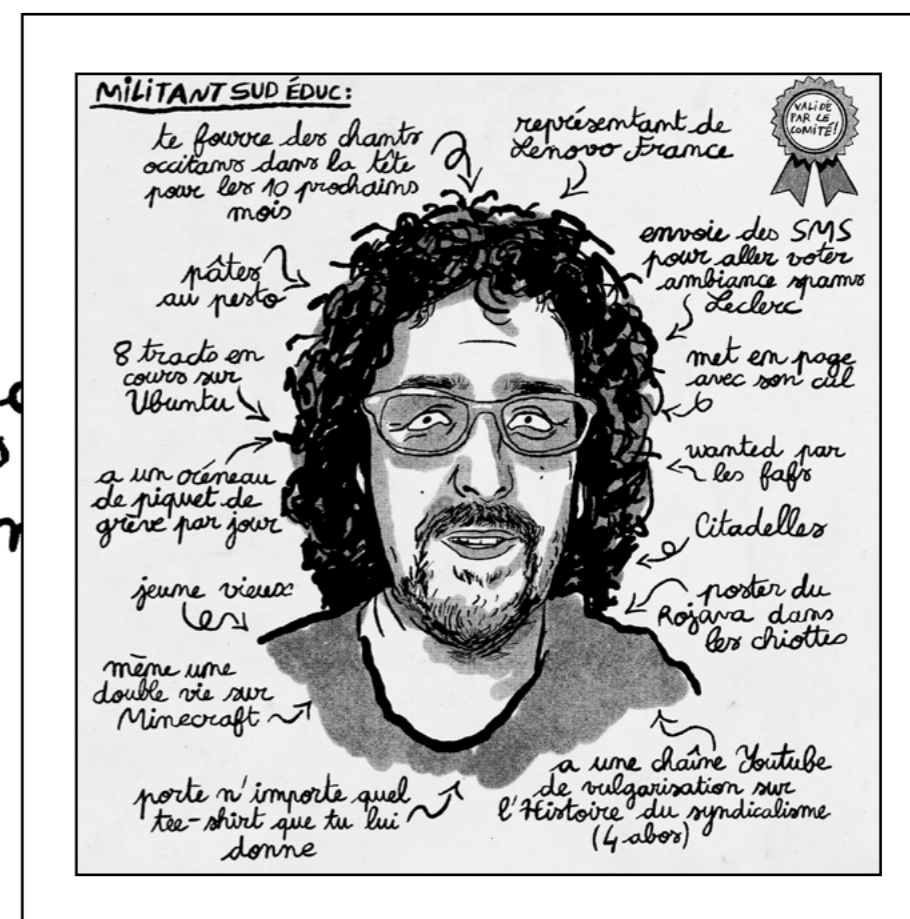 MILITANT SUD ÉDUC:
VALIDÉ
PAR LE
COMITÉ!
te fourre des chants
occitans dans la tête
pour les 10 prochains
mois
représentant de
Lenovo France
envoie des SMS
pour aller voter
ambiance spams
Leclerc
pâtes
au pesto
8 tracts en
cours sur
Ubuntu
met en page
avec son cul
a un créneau
de piquet de
grève par jour
wanted par
les fafs
Citadelles
jeune vieux
poster du
Rojava dans
les chiottes
mène une
double vie sur
Minecraft
a une chaîne Youtube
de vulgarisation sur
l'Histoire du syndicalisme
(4 abos)
porte n'importe quel
tee-shirt que tu lui
donne